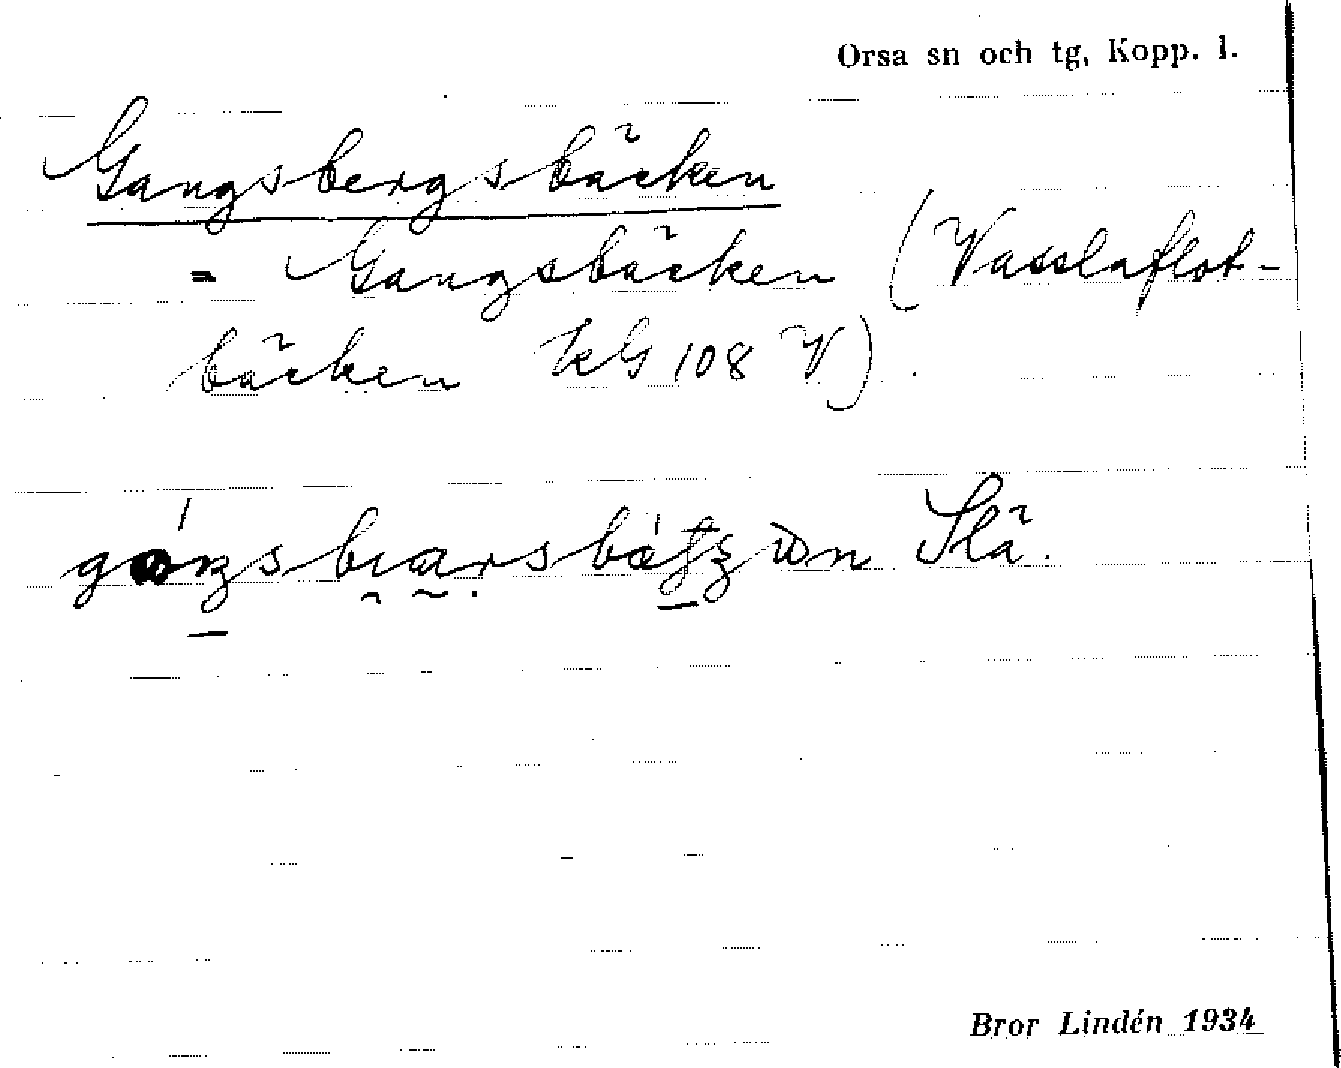 Orsa sn och tg, Kopp. l.
Gangsbergsbäcken
= Gangsbäcken (Vasslaflot-
bäcken KG 108 V)
Slä.
Bror Lindén 1934